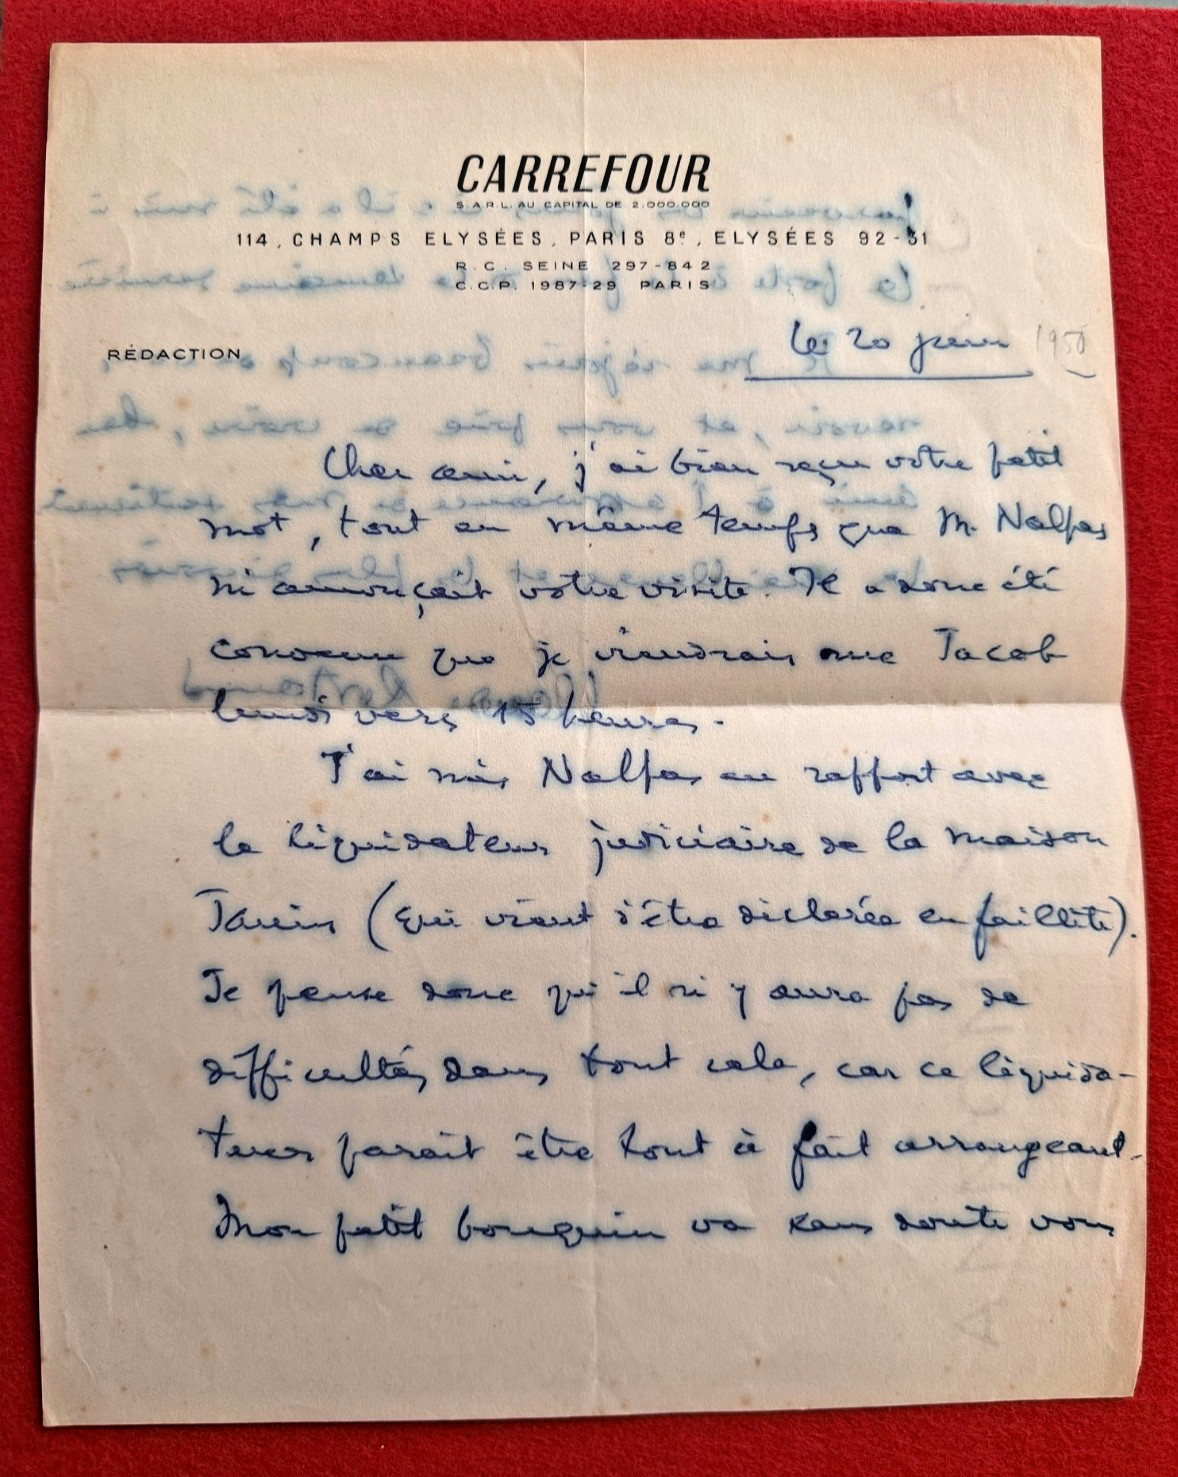 CARREFOUR
S.A.R.L. AU CAPITAL DE 2.000.000
114, CHAMPS ELYSÉES, PARIS 8e, ELYSÉES 92-31
R.C. SEINE 297-842
C.C.P. 1987-29 PARIS
RÉDACTION
le 20 juin 1950
Cher ami, j'ai bien reçu votre petit
mot, tout en même temps que M. Nalpas
m'annonçait votre visite. Il a donc été
convenu que je viendrais me Jacob
lundi vers 15 heures.
J'ai mis Nalpas en rapport avec
le liquidateur judiciaire de la maison
(qui vient d'être déclarée en faillite).
Je pense donc qu'il n'y aura pas de
difficultés dans tout cela, car ce liquida-
teur paraît être tout à fait arrangeant.
Mon petit bouquin va sans doute vous